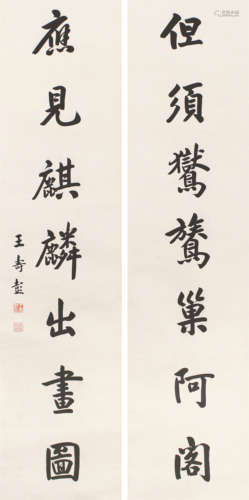 但須鸑鷟巢阿閣
應見麒麟出畫圖
王壽彭